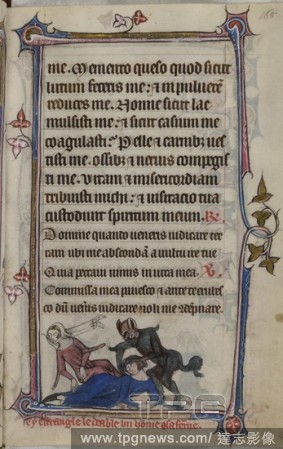 165
me. Memento queso quod sicut
lutum feceris me: et in pulverē
reduces me. Nonne sicut lac
mulsisti me: et sicut caseum me
coagulasti: Pelle et carnibꝫ ves
tisti me. ossibꝫ et nervis compegis
ti me. Vitam et misericordiam
tribuisti michi: et visitacio tua
custodivit spiritum meum. R.
Domine quando veneris iudicare ter
ram ubi me abscondā a vultu ire tue
Quia peccavi nimis in vita mea. V.
Commissa mea pavesco et ante te erubes
co dū veneris iudicare noli me cōdempnare.
cy estrangle le diable un home et sa feme.
TPG
www.tpgnews.com/ 達志影像